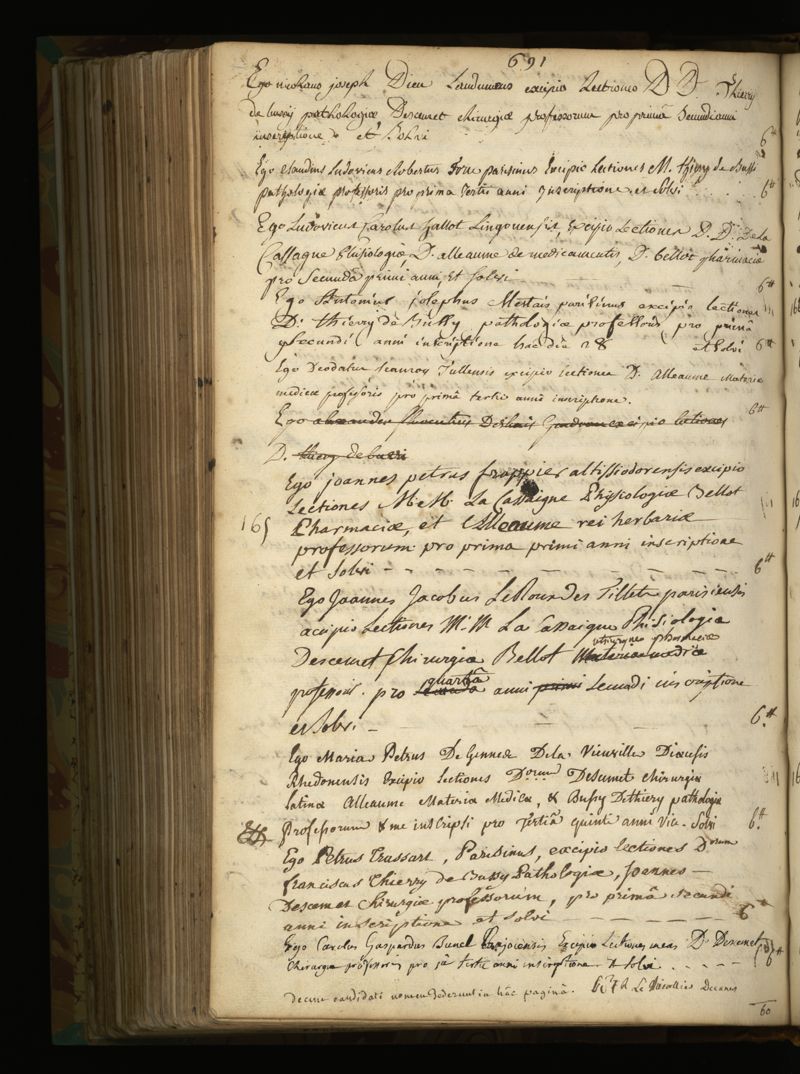 691
Ego joseph Dieu Laudunensis excipio Lectiones D D Thierry
de bussy pathologiæ Descemet chirurgiæ professorum pro primâ secundi anni
inscriptione et solvi
6tt
Ego claudius Ludovicus Robertus parisinus Excipio Lectiones M. thierry de Bussi
pathologiæ professoris pro prima tertii anni inscriptione et solvi 6tt
Ego Ludovicus Carolus hallot Lingonensis, Excipio Lectiones D. D. De La
Cassagne Phisiologiæ, D. alleaume de medicamentis, D. bellot pharmaciæ
pro Secundâ primi anni, et Solvi 6tt
Ego Antonius josephus Mertais parisinus excipio lectiones
D. thierry de Bussy pathologiæ professoris pro primâ
secundi anni inscriptione hac die 28 et solvi 6tt
Ego Deodatus Tullensis excipio lectiones D. Alleaume materiæ
medicæ professoris pro primâ tertii anni inscriptione.
6tt
Ego alexander excipio lectiones
D. thierry de bussi
Ego joannes petrus frappier altissiodorensis excipio
Lectiones M. M. La Cassaigne Physiologiæ Bellot
165
Pharmaciæ, et Alleaume rei herbariæ
professorum pro prima primi anni inscriptione
et solvi - - - - - - - 6tt
Ego Joannes Jacobus Le Roux Des Tillets parisiensis
accipio Lectiones M. M. La Cassaigne Phisiologiæ
utriusque pharmaciæ
Descemet chirurgiæ Bellot Materiæ medicæ
quartâ
professor. pro secunda anni primi secundi inscriptione
et solvi - 6tt
Ego Maria Petrus De Gennes De la Vieuville Diœcesis
Rhedonensis Excipio lectiones Dorum Descemet chirurgiæ
latinæ Alleaume Materiæ Medicæ, & Bussy Dethiery pathologiæ
Professorum & me inscripsi pro Tertiâ quinti anni vice. Solvi 6tt
Ego Petrus Trassart, Parisinus, excipio lectiones Dorum
franciscus Thierry de Bussy Pathologiæ, Joannes -
Descemet chirurgiæ professorum, pro primâ secundi
anni inscriptione et solvi - - - - - 6
Ego Carolus Gaspardus Bunel Excipio Lectiones meas D. Descemet
chirurgiæ professoris pro 1â tertii anni inscriptione et solvi . . - - - 6tt
decem candidati nomen dederunt in hâc paginâ. Decanus
60